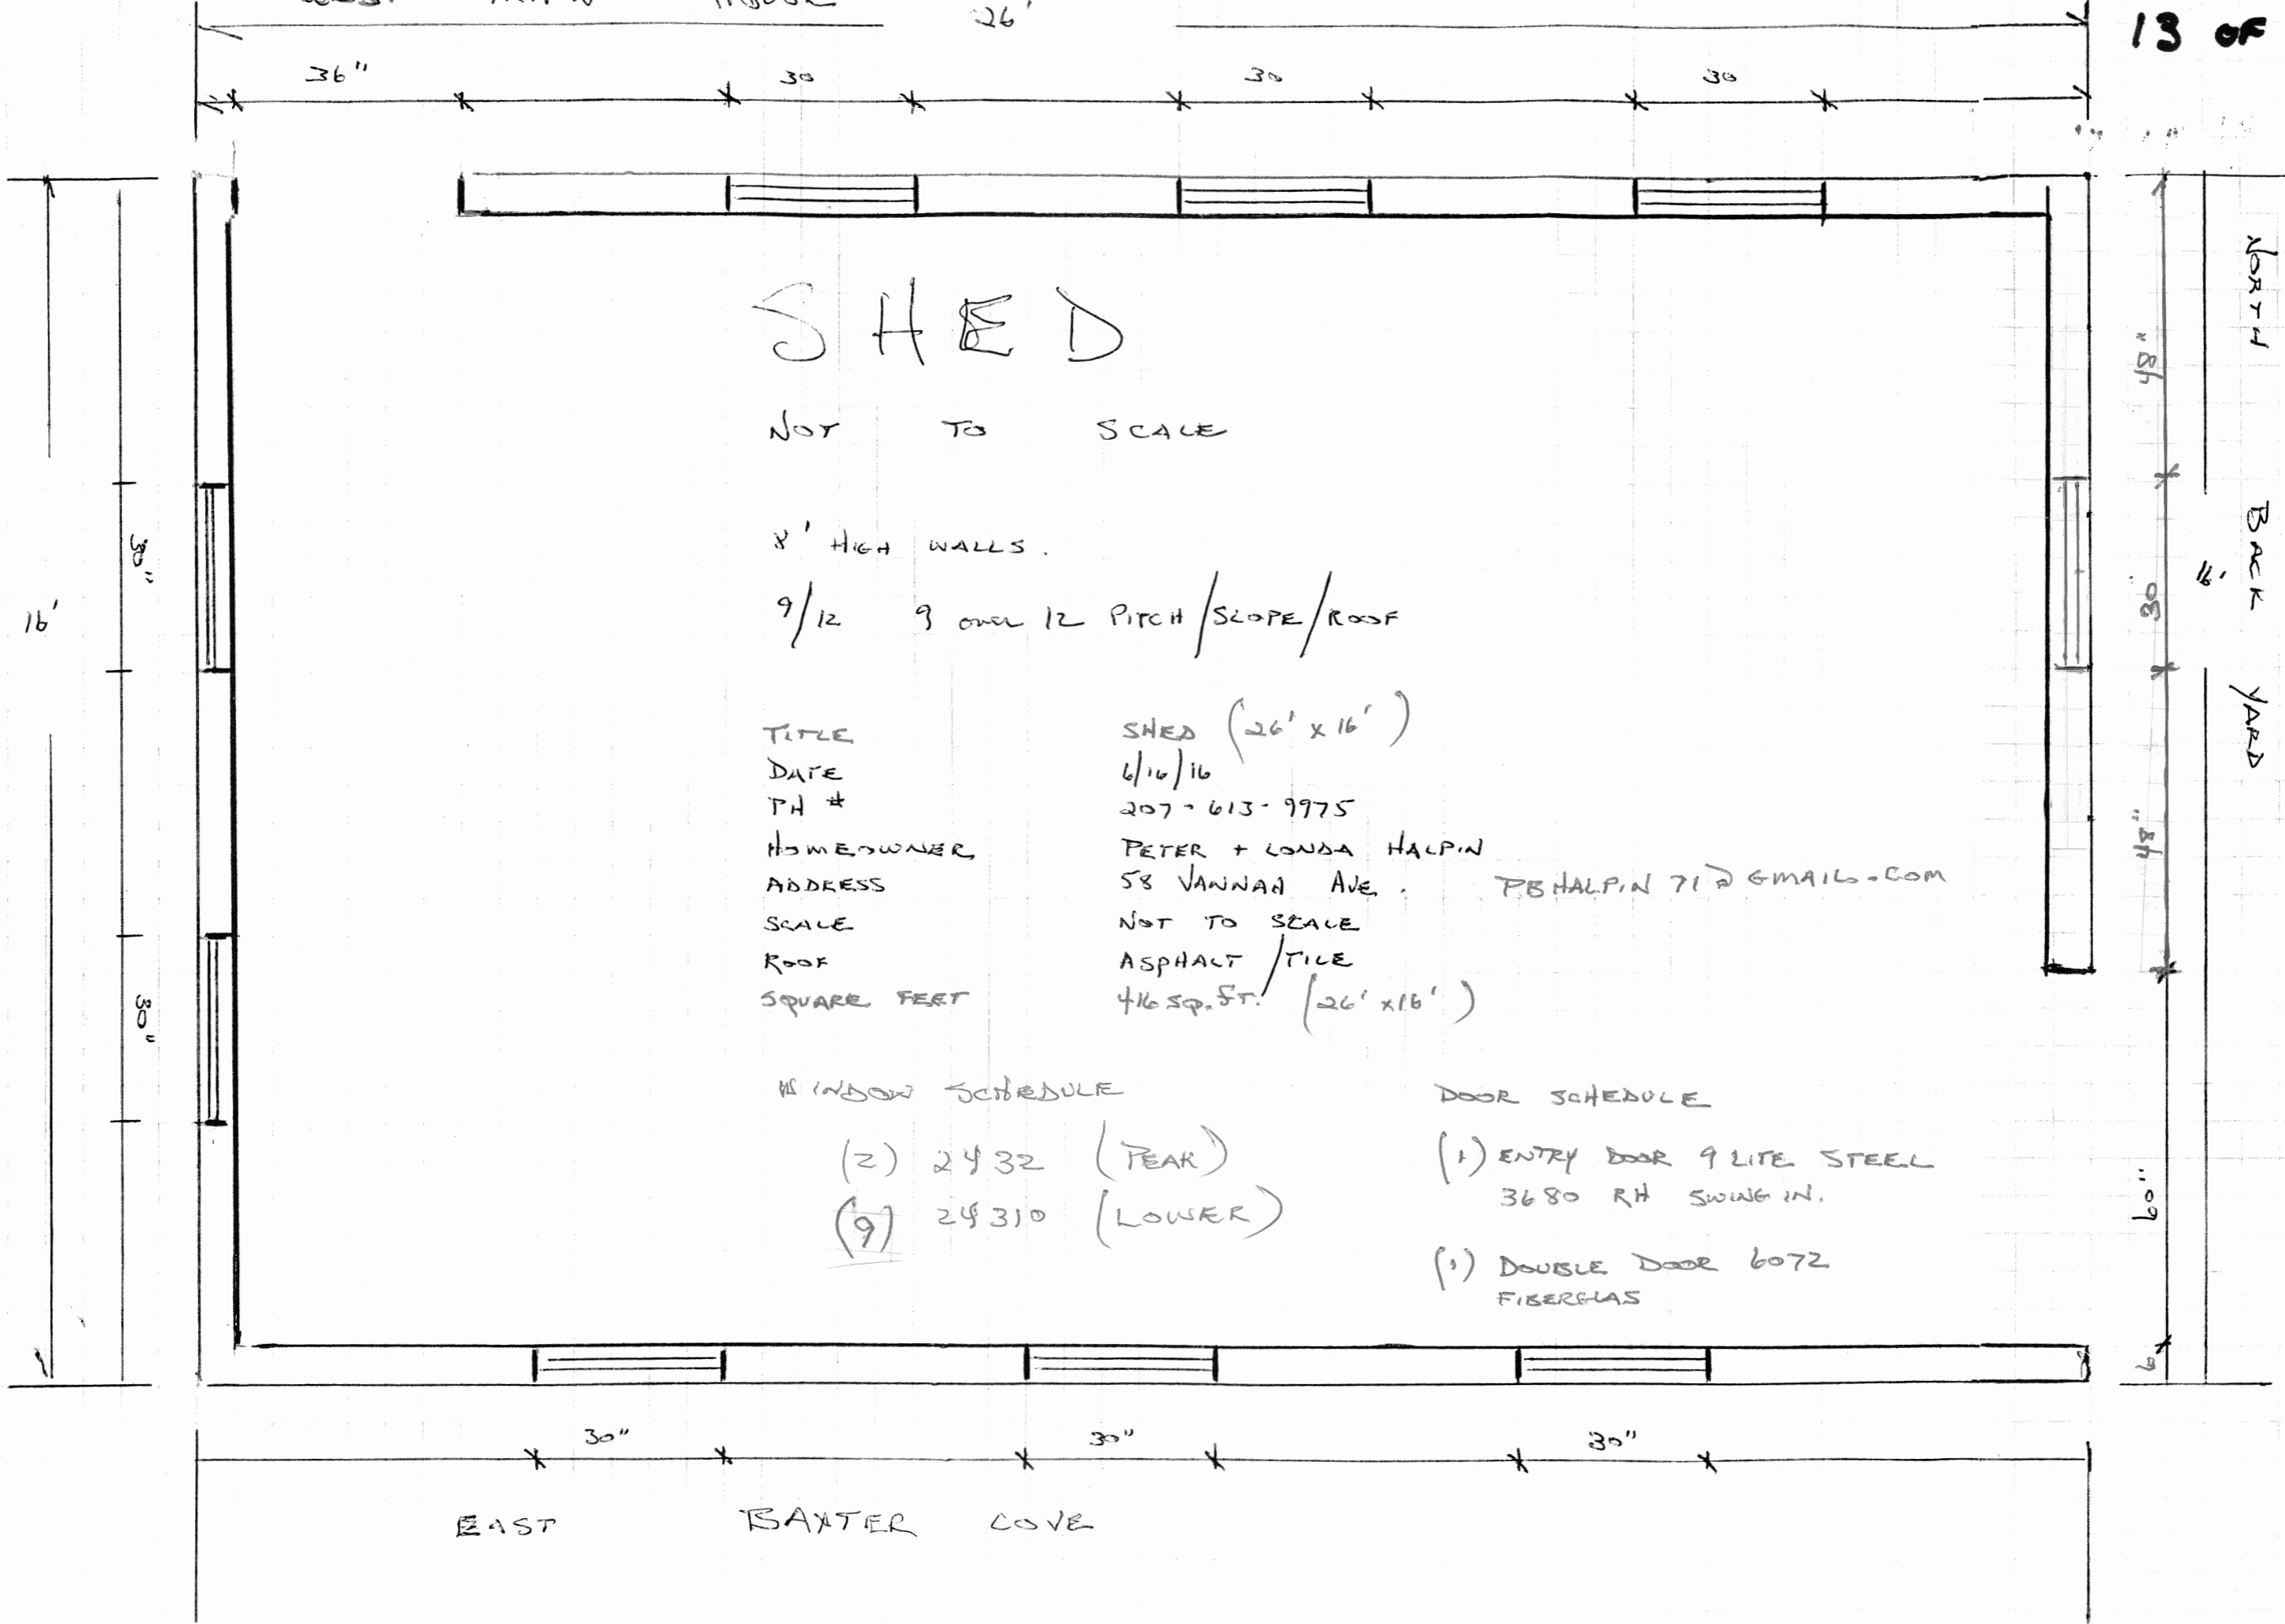 26'
13 OF
36" 30 30 30
SHED
NOT TO SCALE
8' HIGH WALLS.
9/12 9 over 12 PITCH/SLOPE/ROOF
TITLE SHED (26' x 16')
DATE 6/16/16
PH # 207-613-9975
HOMEOWNER PETER + LONDA HALPIN
ADDRESS 58 VANNAH AVE. PBHALPIN71@GMAIL.COM
SCALE NOT TO SCALE
ROOF ASPHALT/TILE
SQUARE FEET 416 SQ. FT. (26' x 16')
WINDOW SCHEDULE
(2) 2432 (PEAK)
(9) 24310 (LOWER)
DOOR SCHEDULE
(1) ENTRY DOOR 9 LITE STEEL
3680 RH SWING IN.
(1) DOUBLE DOOR 6072
FIBERGLAS
16'
30"
30"
48"
30"
48"
60"
6"
16'
NORTH BACK YARD
30" 30" 30"
EAST BAXTER COVE